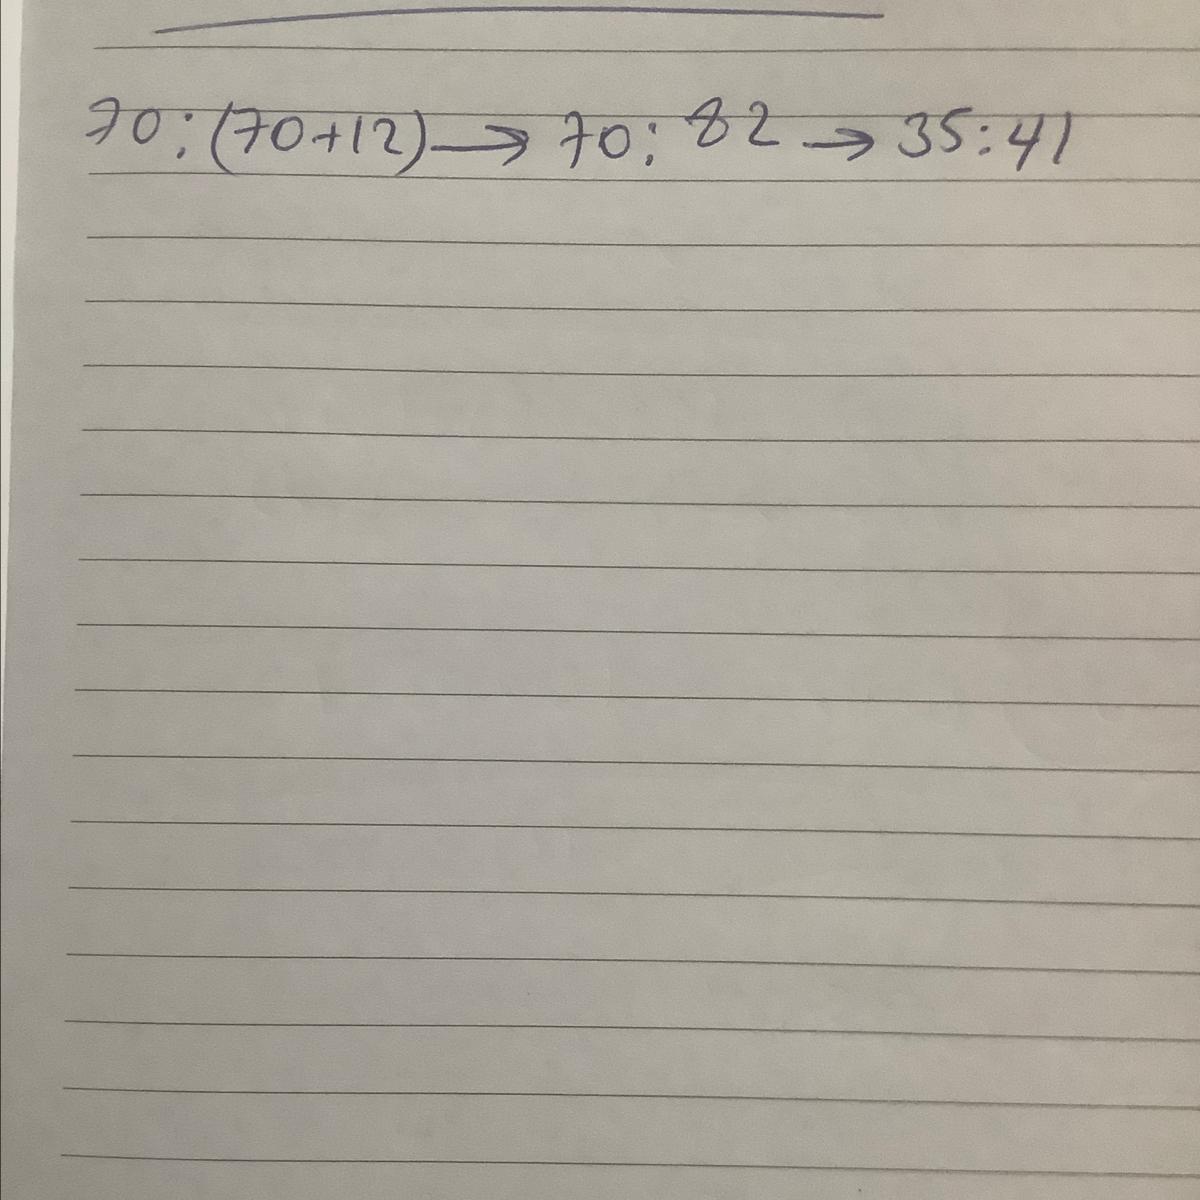 70:(70+12)→70:82→35:41